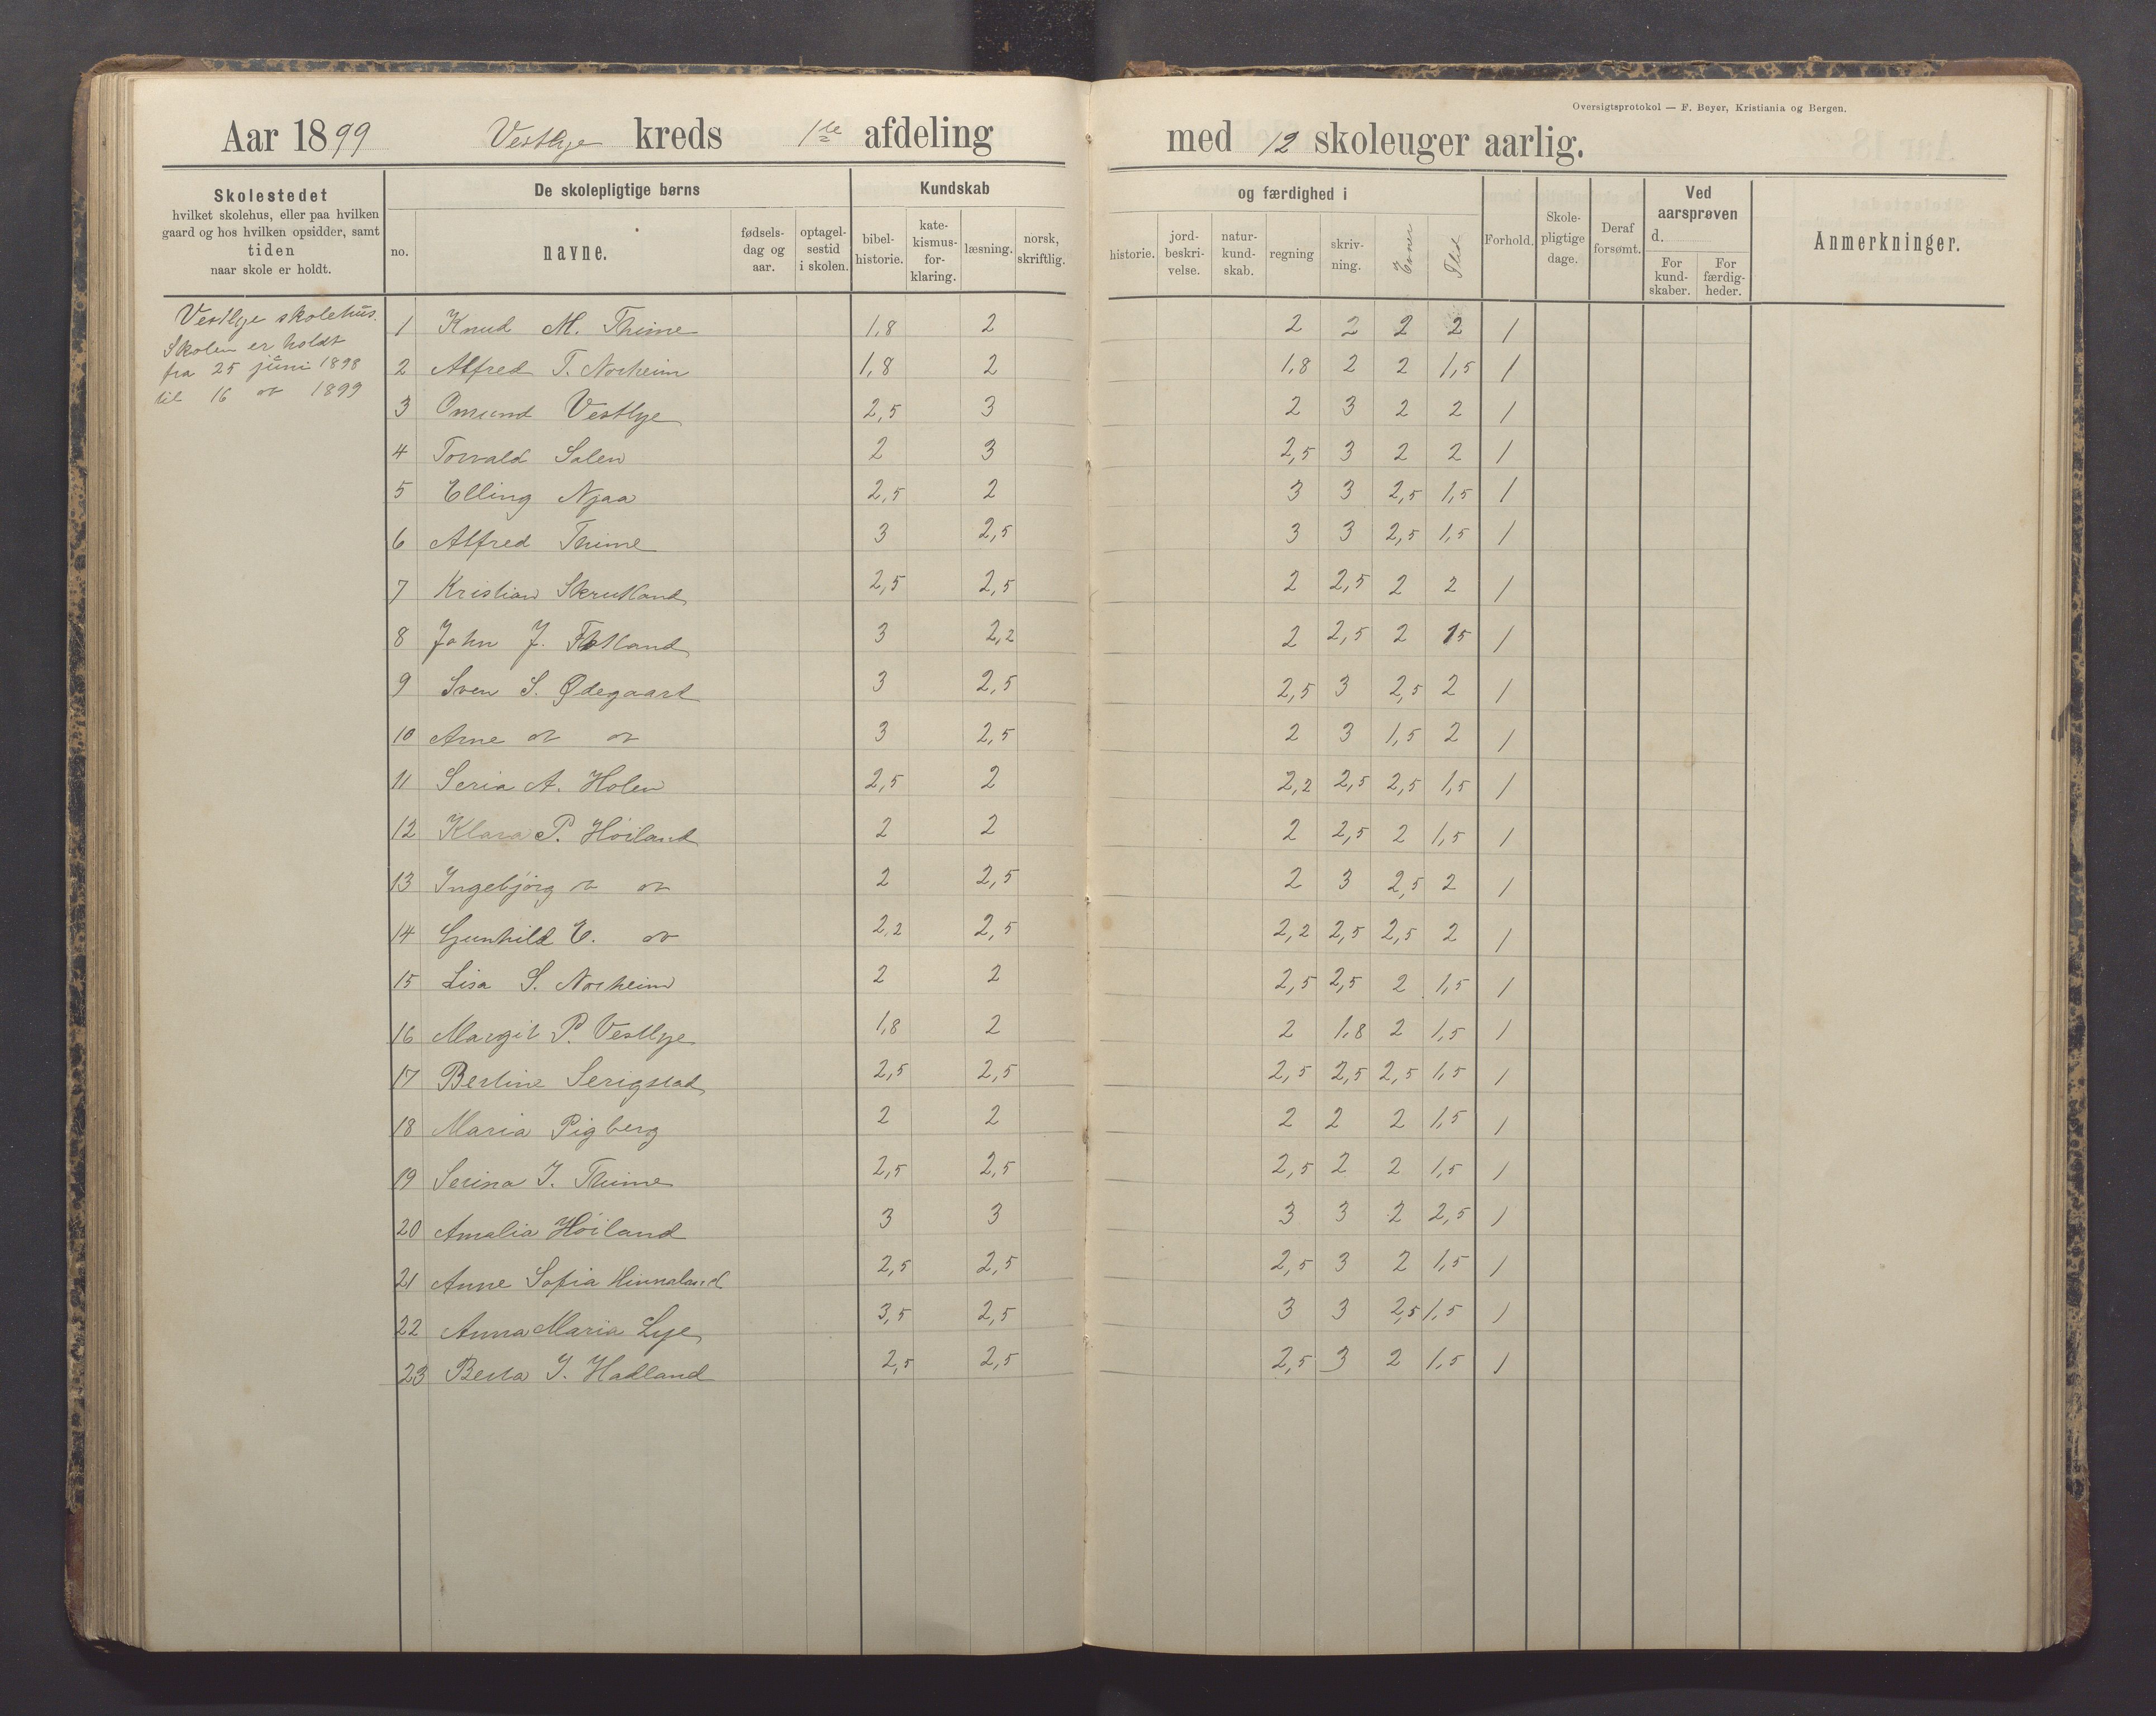 Oversigtsprotokol — F. Beyer, Kristiania og Bergen.
Aar 1899 Vestlye kreds 1ste afdeling med 12 skoleuger aarlig.
Skolestedet
hvilket skolehus, eller paa hvilken
gaard og hos hvilken opsidder, samt
tiden
naar skole er holdt.
De skolepligtige børns
no.
navne.
fødsels-
dag og
aar.
optagel-
sestid
i skolen.
Kundskab
bibel-
historie.
kate-
kismus-
for-
klaring.
læsning.
norsk,
skriftlig.
og færdighed i
historie.
jord-
beskri-
velse.
natur-
kund-
skab.
regning
skriv-
ning.
Evner
Flid
Forhold.
Skole-
pligtige
dage.
Deraf
forsømt.
Ved
aarsprøven
d.
For
kund-
skaber.
For
færdig-
heder.
Anmerkninger.
Vestlye skolehus.
Skolen er holdt
fra 25 juni 1898
til 16 " 1899
1 Knud M. Thime 1,8 2 2 2 2 2 1
2 Alfred T. Norheim 1,8 2 1,8 2 2 1,5 1
3 Omund Vestlye 2,5 3 2 3 2 2 1
4 Torvald Salen 2 3 2,5 3 2 2 1
5 Elling Njaa 2,5 2 3 3 2,5 1,5 1
6 Alfred Thime 3 2,5 3 3 2,5 1,5 1
7 Kristian Skrutland 2,5 2,5 2 2,5 2 2 1
8 John J. 3 2,2 2 2,5 2 15 1
9 Sven S. Ødegaard 3 2,5 2,5 3 2,5 2 1
10 Arne " " 3 2,5 2 3 1,5 2 1
11 Seria A. Holen 2,5 2 2,2 2,5 2,5 1,5 1
12 Klara P. Høiland 2 2 2 2,5 2 1,5 1
13 Ingebjørg " " 2 2,5 2 3 2,5 2 1
14 Gunhild E. " 2,2 2,5 2,2 2,5 2,5 2 1
15 Lisa S. Norheim 2 2 2,5 2,5 2 1,5 1
16 Margit P. Vestlye 1,8 2 2 1,8 2 1,5 1
17 Bertine Serigstad 2,5 2,5 2,5 2,5 2,5 1,5 1
18 Maria Pigberg 2 2 2 2 2 1,5 1
19 Serina J. Thime 2,5 2,5 2,5 2 2 1,5 1
20 Amalia Høiland 3 3 3 3 2 2,5 1
21 Anne Sofia Hinnaland 2,5 2,5 2,5 3 2 1,5 1
22 Anna Maria Lye 3,5 2,5 3 3 2,5 1,5 1
23 Berta J. Hadland 2,5 2,5 2,5 3 2 1,5 1